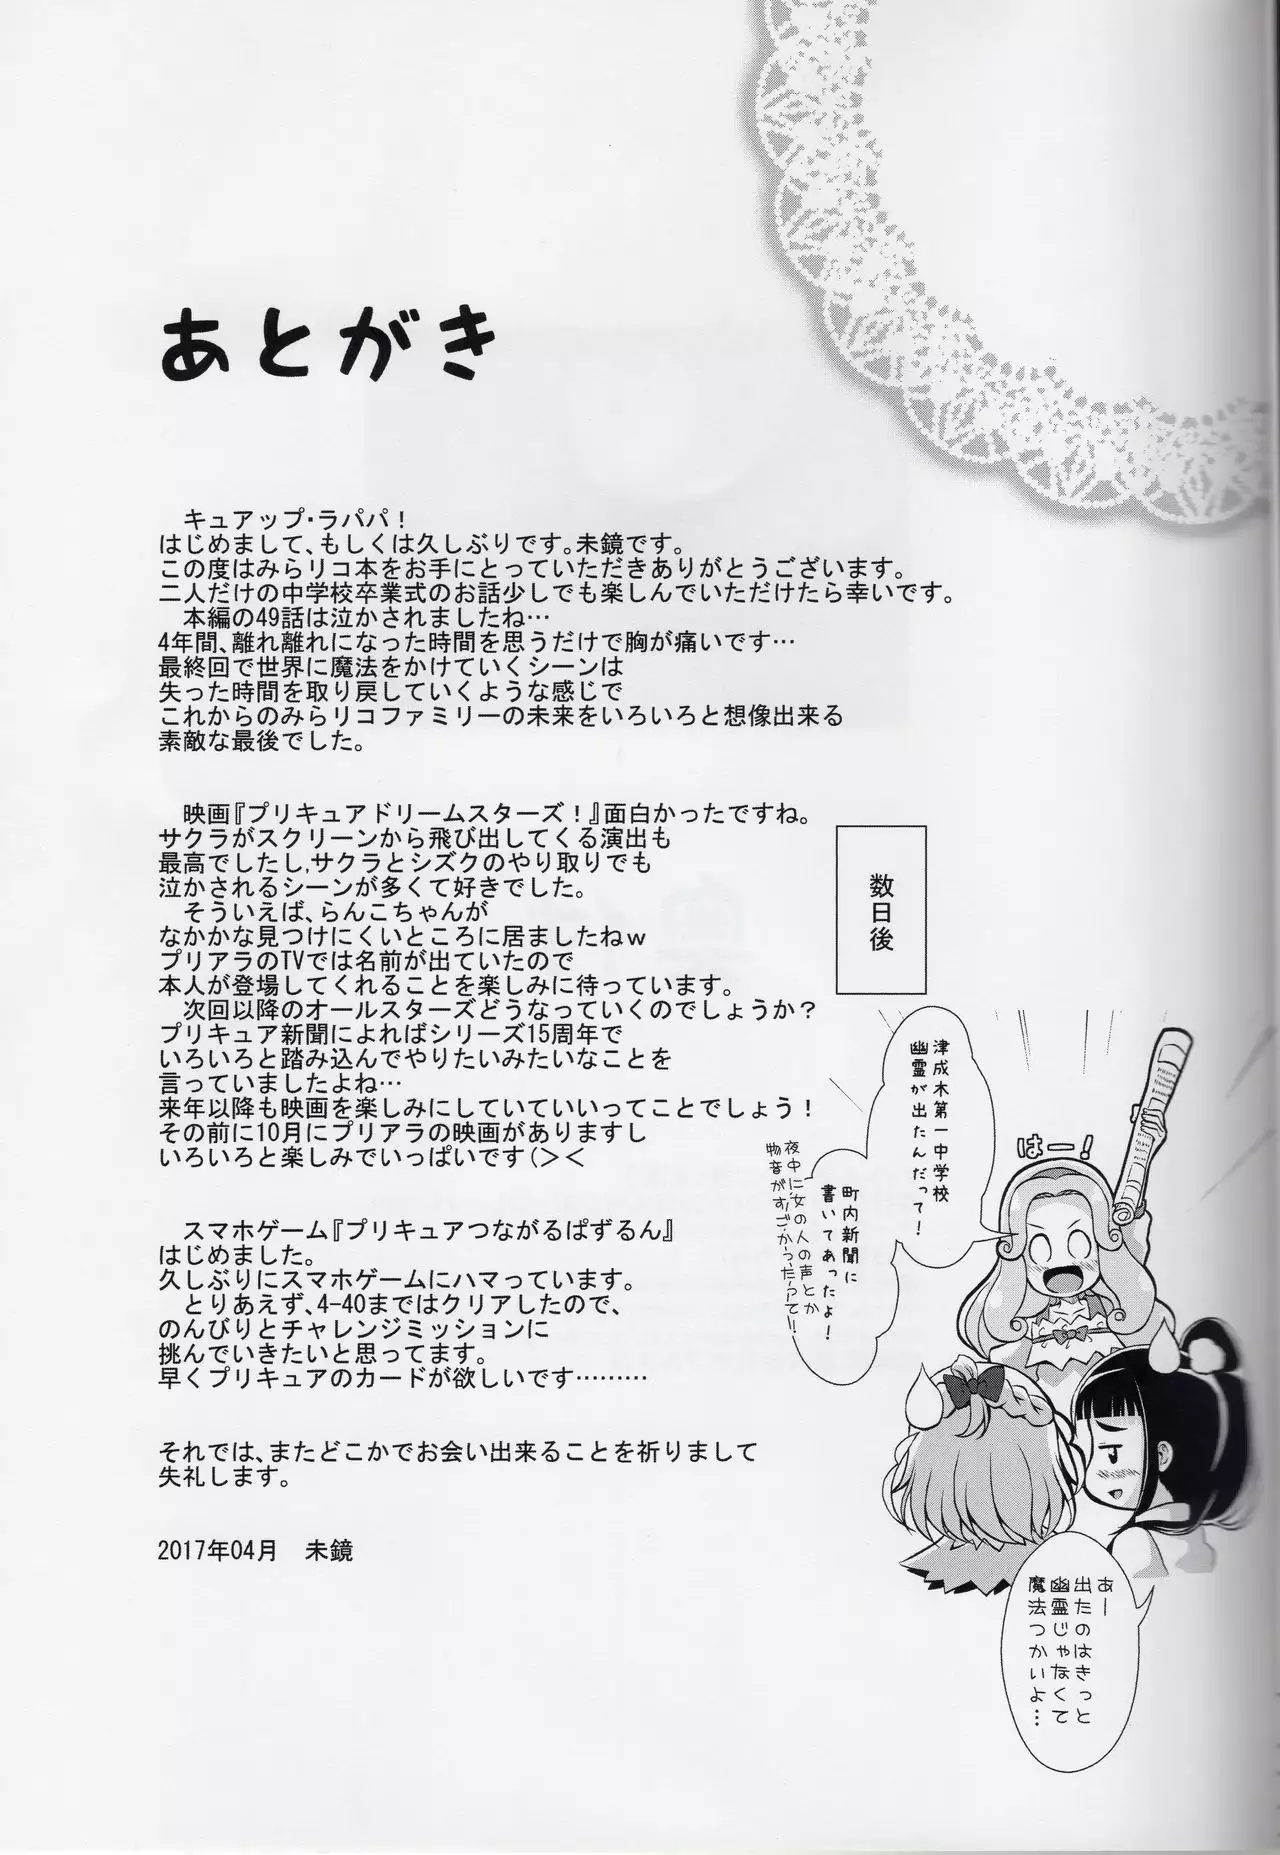 あとがき
キュアップ・ラパパ！
はじめまして、もしくは久しぶりです。未鏡です。
この度はみらリコ本をお手にとっていただきありがとうございます。
二人だけの中学校卒業式のお話少しでも楽しんでいただけたら幸いです。
本編の49話は泣かされましたね…
4年間、離れ離れになった時間を思うだけで胸が痛いです…
最終回で世界に魔法をかけていくシーンは
失った時間を取り戻していくような感じで
これからのみらリコファミリーの未来をいろいろと想像出来る
素敵な最後でした。
映画『プリキュアドリームスターズ！』面白かったですね。
サクラがスクリーンから飛び出してくる演出も
最高でしたし,サクラとシズクのやり取りでも
泣かされるシーンが多くて好きでした。
そういえば、らんこちゃんが
なかかな見つけにくいところに居ましたねｗ
プリアラのTVでは名前が出ていたので
本人が登場してくれることを楽しみに待っています。
次回以降のオールスターズどうなっていくのでしょうか？
プリキュア新聞によればシリーズ15周年で
いろいろと踏み込んでやりたいみたいなことを
言っていましたよね…
来年以降も映画を楽しみにしていていいってことでしょう！
その前に10月にプリアラの映画がありますし
いろいろと楽しみでいっぱいです（＞＜
スマホゲーム『プリキュアつながるぱずるん』
はじめました。
久しぶりにスマホゲームにハマっています。
とりあえず、4-40まではクリアしたので、
のんびりとチャレンジミッションに
挑んでいきたいと思ってます。
早くプリキュアのカードが欲しいです………
それでは、またどこかでお会い出来ることを祈りまして
失礼します。
2017年04月　未鏡
数日後
はー！
津成木第一中学校
幽霊が出たんだって！
町内新聞に
書いてあったよ！
夜中に女の人の声とか
物音がすっごかったって！！
あー
出たのはきっと
幽霊じゃなくて
魔法つかいよ…